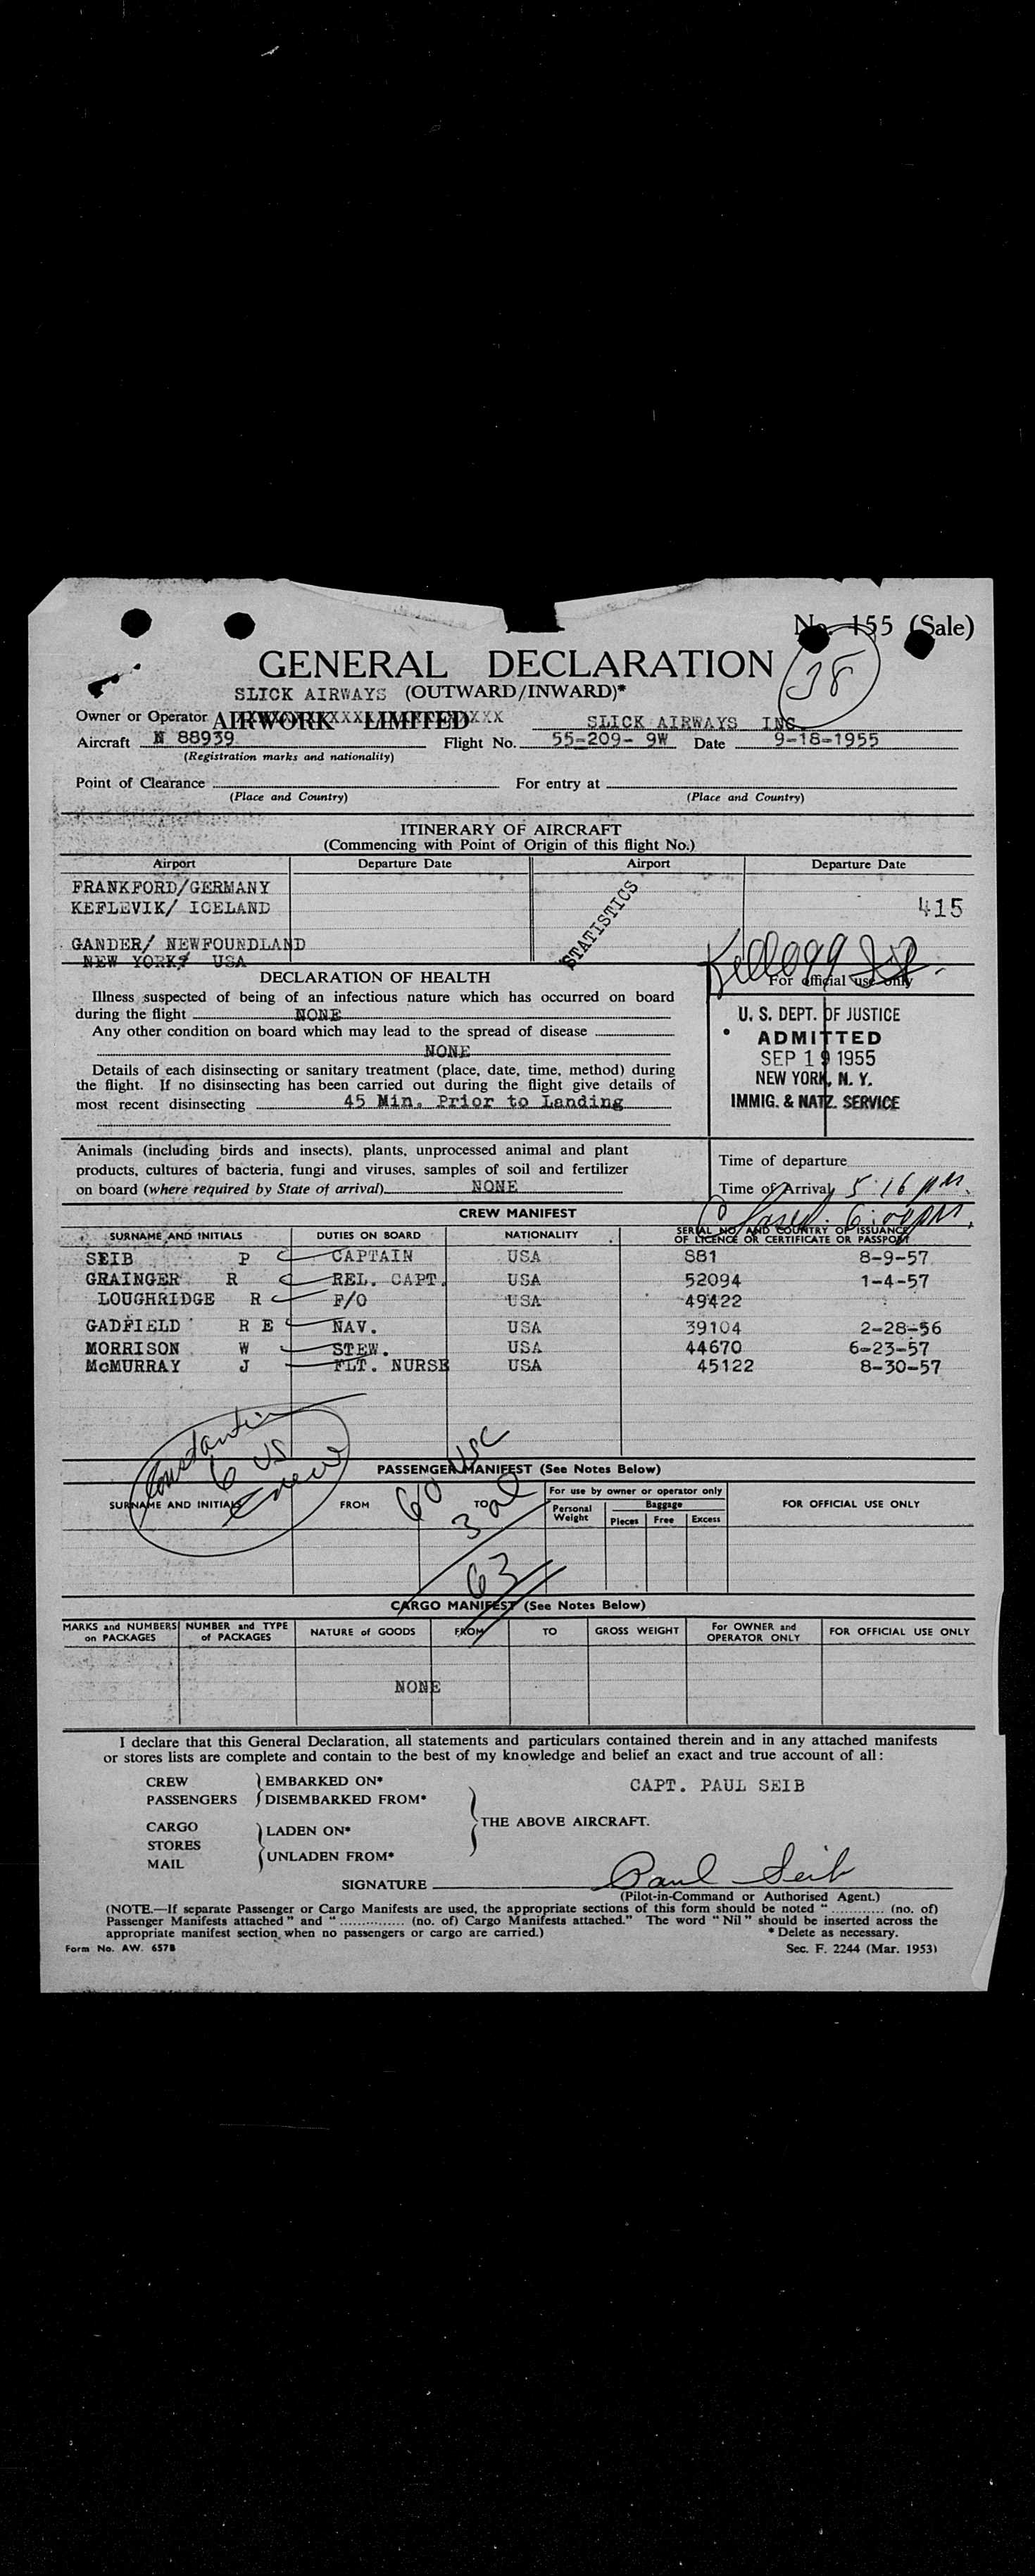 No. 155 (Sale)
38
GENERAL DECLARATION
SLICK AIRWAYS (OUTWARD/INWARD)*
Owner or Operator AIRWORK LIMITED SLICK AIRWAYS INC
Aircraft N 88939 Flight No. 55-209- 9W Date 9-18-1955
(Registration marks and nationality)
Point of Clearance For entry at
(Place and Country) (Place and Country)
ITINERARY OF AIRCRAFT
(Commencing with Point of Origin of this flight No.)
Airport Departure Date Airport Departure Date
FRANKFORD/GERMANY
KEFLEVIK/ ICELAND 415
STATISTICS
GANDER/ NEWFOUNDLAND
NEW YORK/ USA
Kellogg
DECLARATION OF HEALTH
For official use only
Illness suspected of being of an infectious nature which has occurred on board
during the flight NONE
Any other condition on board which may lead to the spread of disease
NONE
Details of each disinsecting or sanitary treatment (place, date, time, method) during
the flight. If no disinsecting has been carried out during the flight give details of
most recent disinsecting 45 Min. Prior to Landing
U. S. DEPT. OF JUSTICE
ADMITTED
SEP 19 1955
NEW YORK, N. Y.
IMMIG. & NATZ. SERVICE
Animals (including birds and insects), plants, unprocessed animal and plant
products, cultures of bacteria, fungi and viruses, samples of soil and fertilizer
on board (where required by State of arrival) NONE
Time of departure
Time of Arrival 5:16 pm.
CREW MANIFEST
SURNAME AND INITIALS DUTIES ON BOARD NATIONALITY SERIAL NO. AND COUNTRY OF ISSUANCE
OF LICENCE OR CERTIFICATE OR PASSPORT
SEIB P CAPTAIN USA 881 8-9-57
GRAINGER R REL. CAPT. USA 52094 1-4-57
LOUGHRIDGE R F/O USA 49422
GADFIELD R E NAV. USA 39104 2-28-56
MORRISON W STEW. USA 44670 6-23-57
McMURRAY J FLT. NURSE USA 45122 8-30-57
Constantin
6 US
60 USC
3 al
63
PASSENGER MANIFEST (See Notes Below)
SURNAME AND INITIALS FROM TO For use by owner or operator only FOR OFFICIAL USE ONLY
Personal Weight Baggage
Pieces Free Excess
CARGO MANIFEST (See Notes Below)
MARKS and NUMBERS on PACKAGES NUMBER and TYPE of PACKAGES NATURE of GOODS FROM TO GROSS WEIGHT For OWNER and OPERATOR ONLY FOR OFFICIAL USE ONLY
NONE
I declare that this General Declaration, all statements and particulars contained therein and in any attached manifests
or stores lists are complete and contain to the best of my knowledge and belief an exact and true account of all:
CREW EMBARKED ON* CAPT. PAUL SEIB
PASSENGERS DISEMBARKED FROM*
THE ABOVE AIRCRAFT.
CARGO LADEN ON*
STORES
MAIL UNLADEN FROM*
SIGNATURE Paul Seib
(Pilot-in-Command or Authorised Agent.)
(NOTE.—If separate Passenger or Cargo Manifests are used, the appropriate sections of this form should be noted “ ............ (no. of)
Passenger Manifests attached” and “ ............... (no. of) Cargo Manifests attached.” The word “Nil” should be inserted across the
appropriate manifest section when no passengers or cargo are carried.) * Delete as necessary.
Form No. AW. 657B Sec. F. 2244 (Mar. 1953)